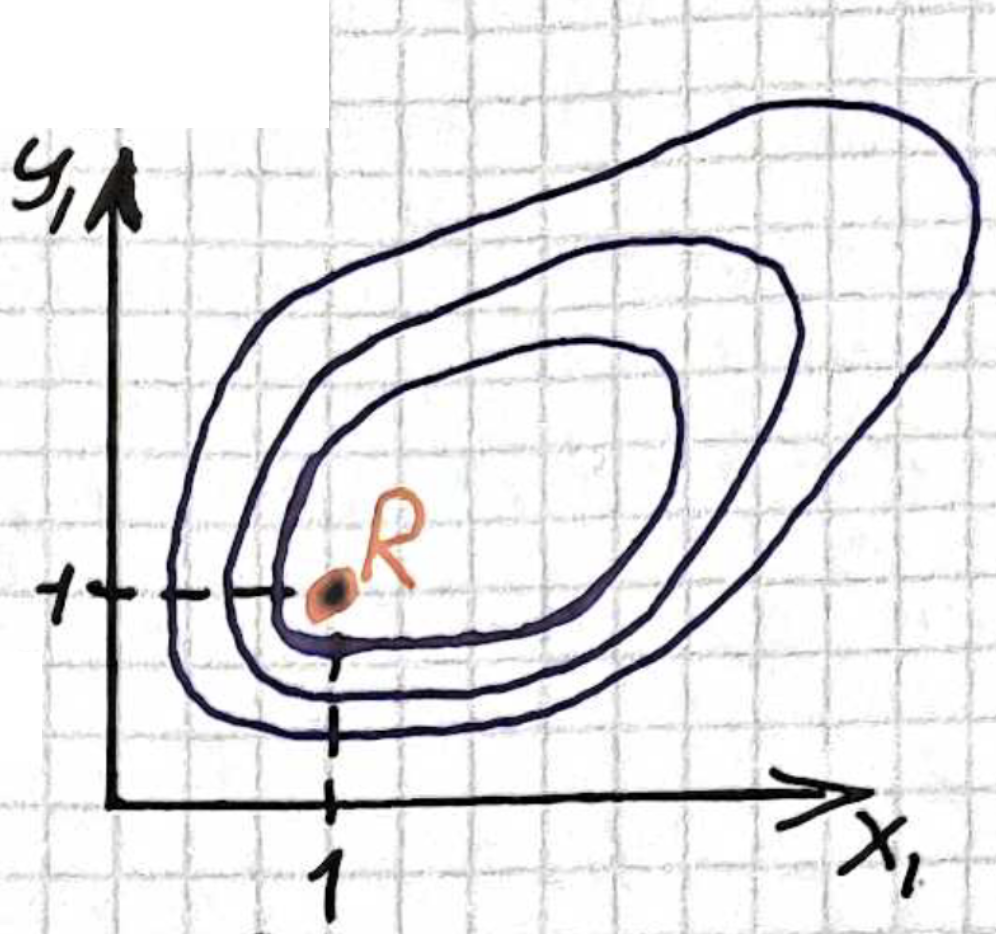 y₁
R
1
1
x₁